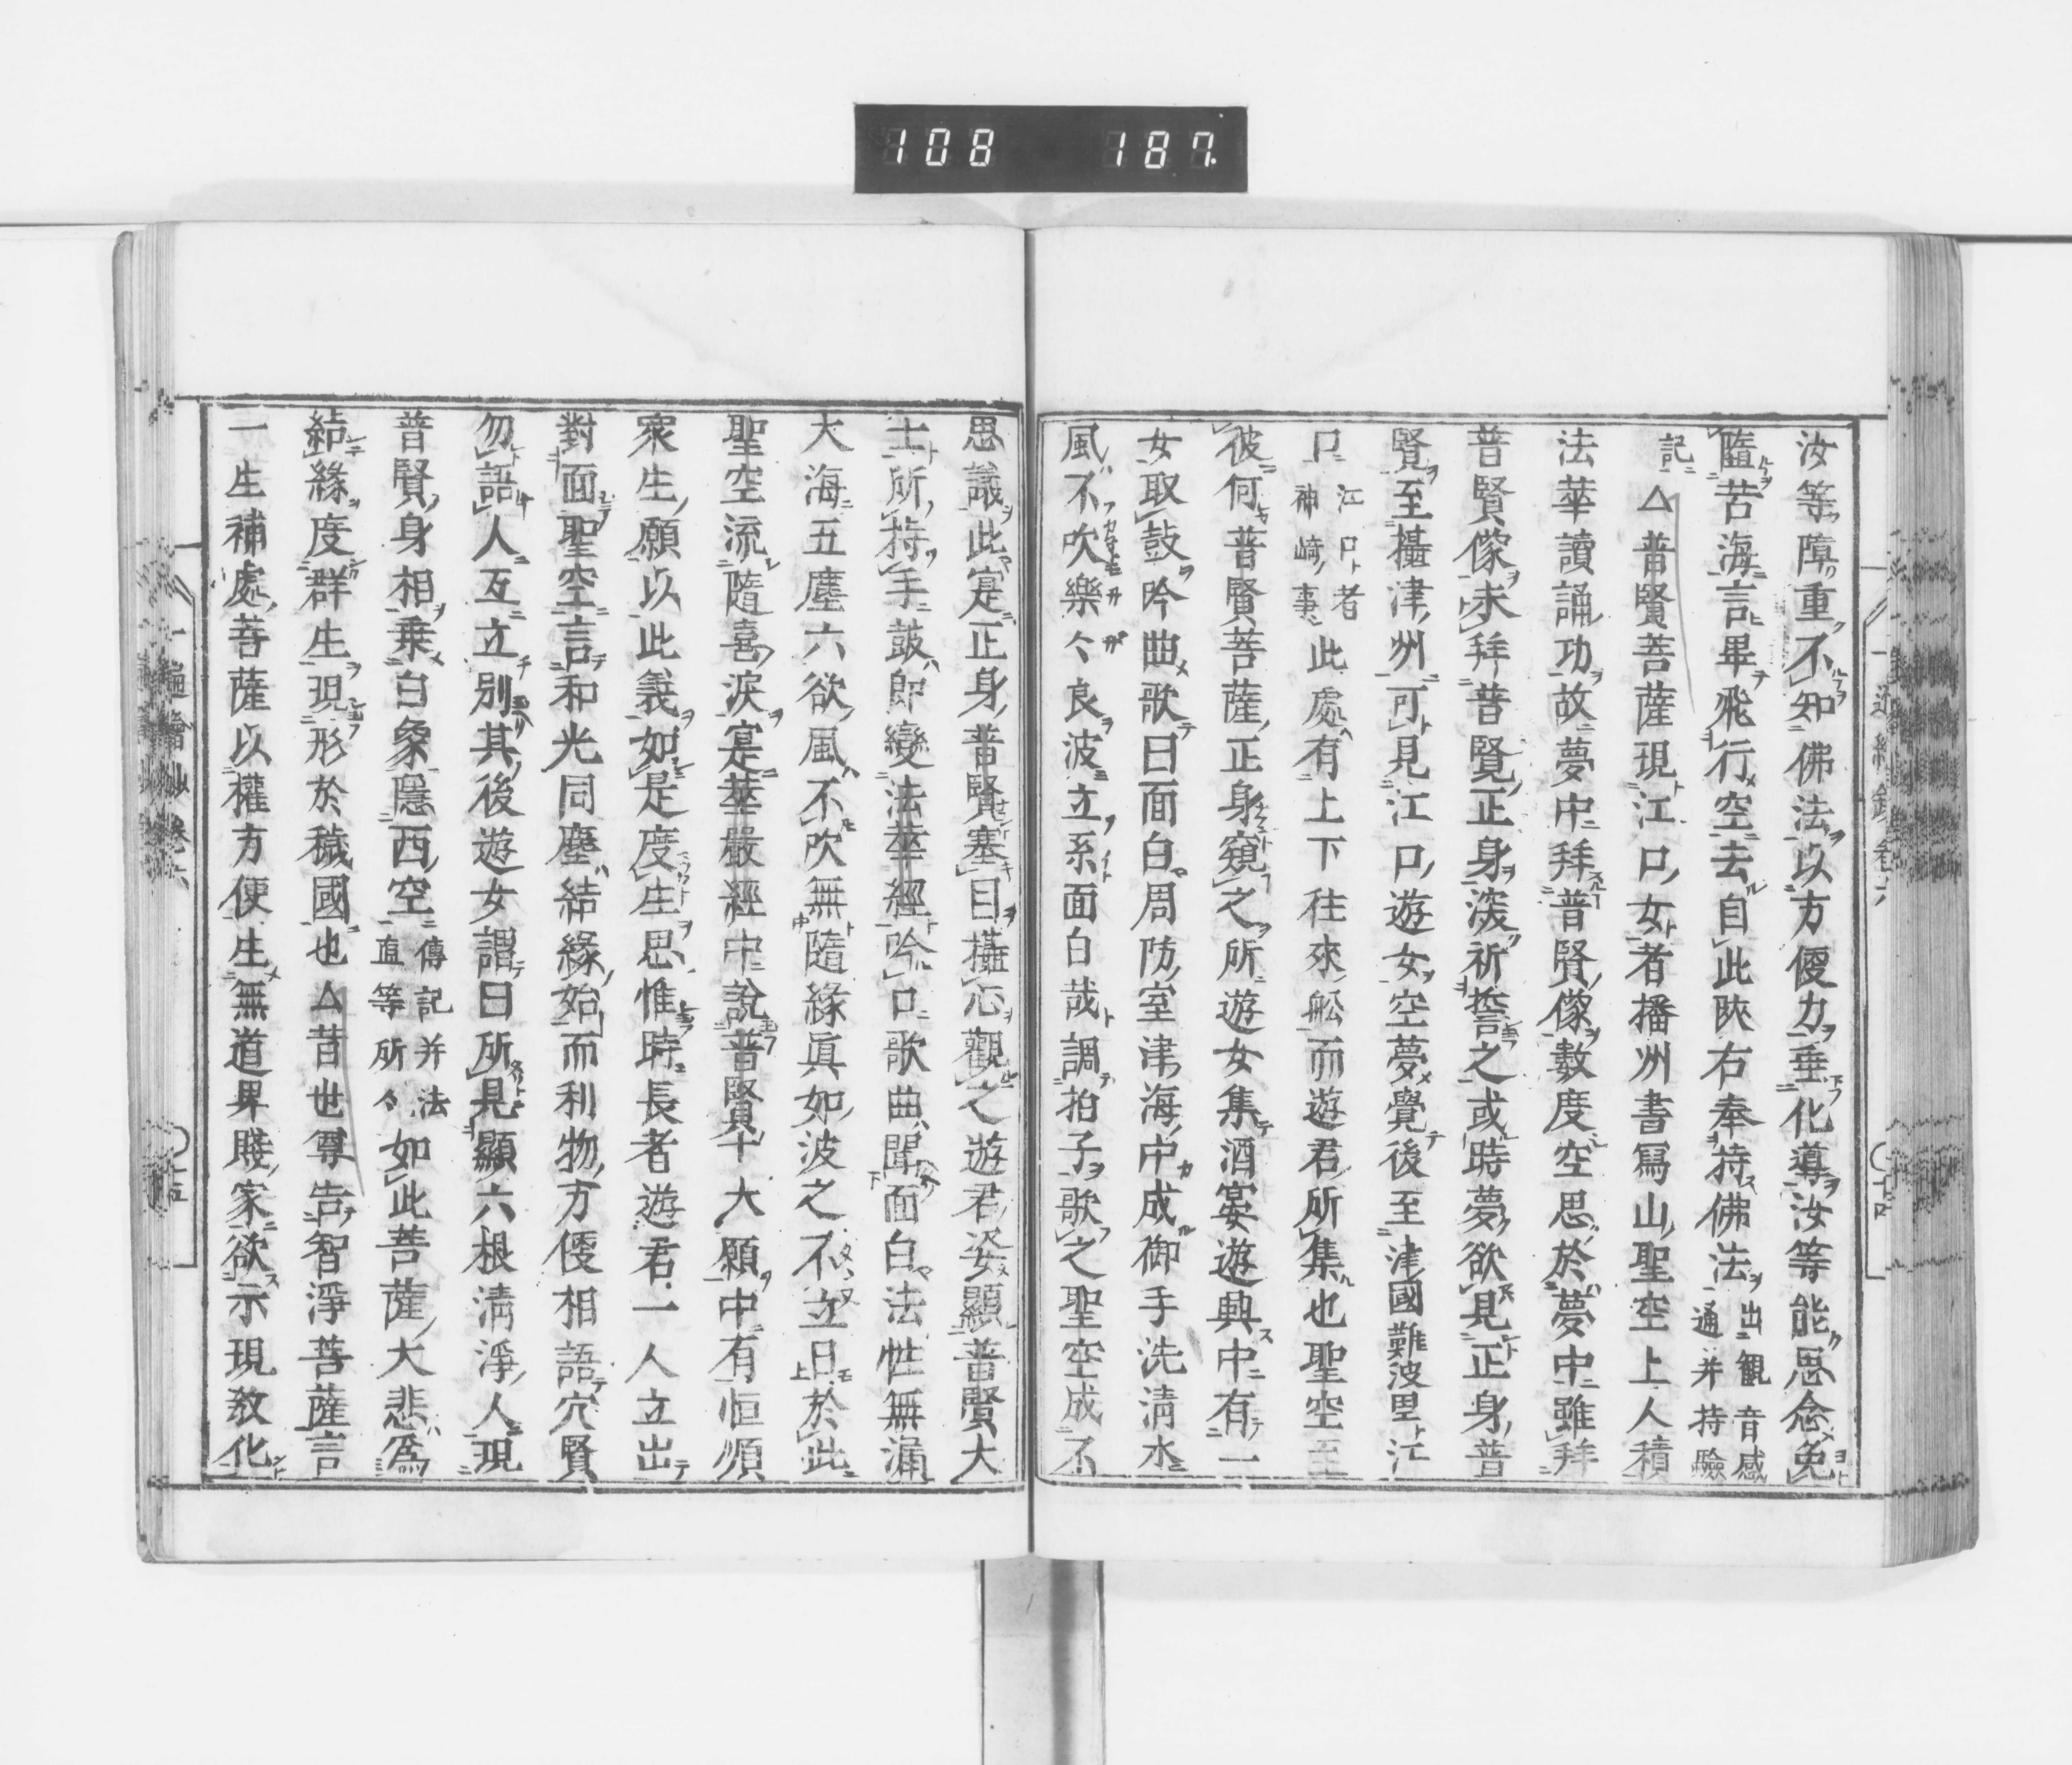 108 187
汝等障重不知佛法以方便力垂化導汝等能思念免
隨苦海言畢飛行空去自此陜右奉持佛法出觀音感通并持驗
記△普賢菩薩現江口女者播州書寫山聖空上人積
法華讀誦功故夢中拜普賢像數度空思於夢中雖拜
普賢像未拜普賢正身深祈誓之或時夢欲見正身普
賢至攝津州可見江口遊女空夢覺後至津國難波里江
口江口者神崎事此處有上下往來舩而遊君所集也聖空至
彼何普賢菩薩正身窺之所遊女集酒宴遊興中有一
女取鼓吟曲歌曰面白周防室津海中成御手洗清水
風不吹樂々良波立系面白哉調拍子歌之聖空成不
思議此寔正身普賢塞目攝心觀之遊君姿顯普賢大
士所持手鼓即變法華經吟口歌曲聞面白法性無漏
大海五塵六欲風不吹無隨緣眞如波之不立日於此
聖空流隨喜淚寔華嚴經中說普賢十大願中有恒順
衆生願以此義如是度生思惟時長者遊君一人立出
對面聖空言和光同塵結緣始而利物方便相語穴賢
勿語人互立別其後遊女謂曰所見顯六根清淨人現
普賢身相乘白象隱西空傳記并法直等所々如此菩薩大悲爲
結緣度群生現形於穢國也△昔世尊告智淨菩薩言
一生補處菩薩以權方便生無道畀賤家欲示現教化